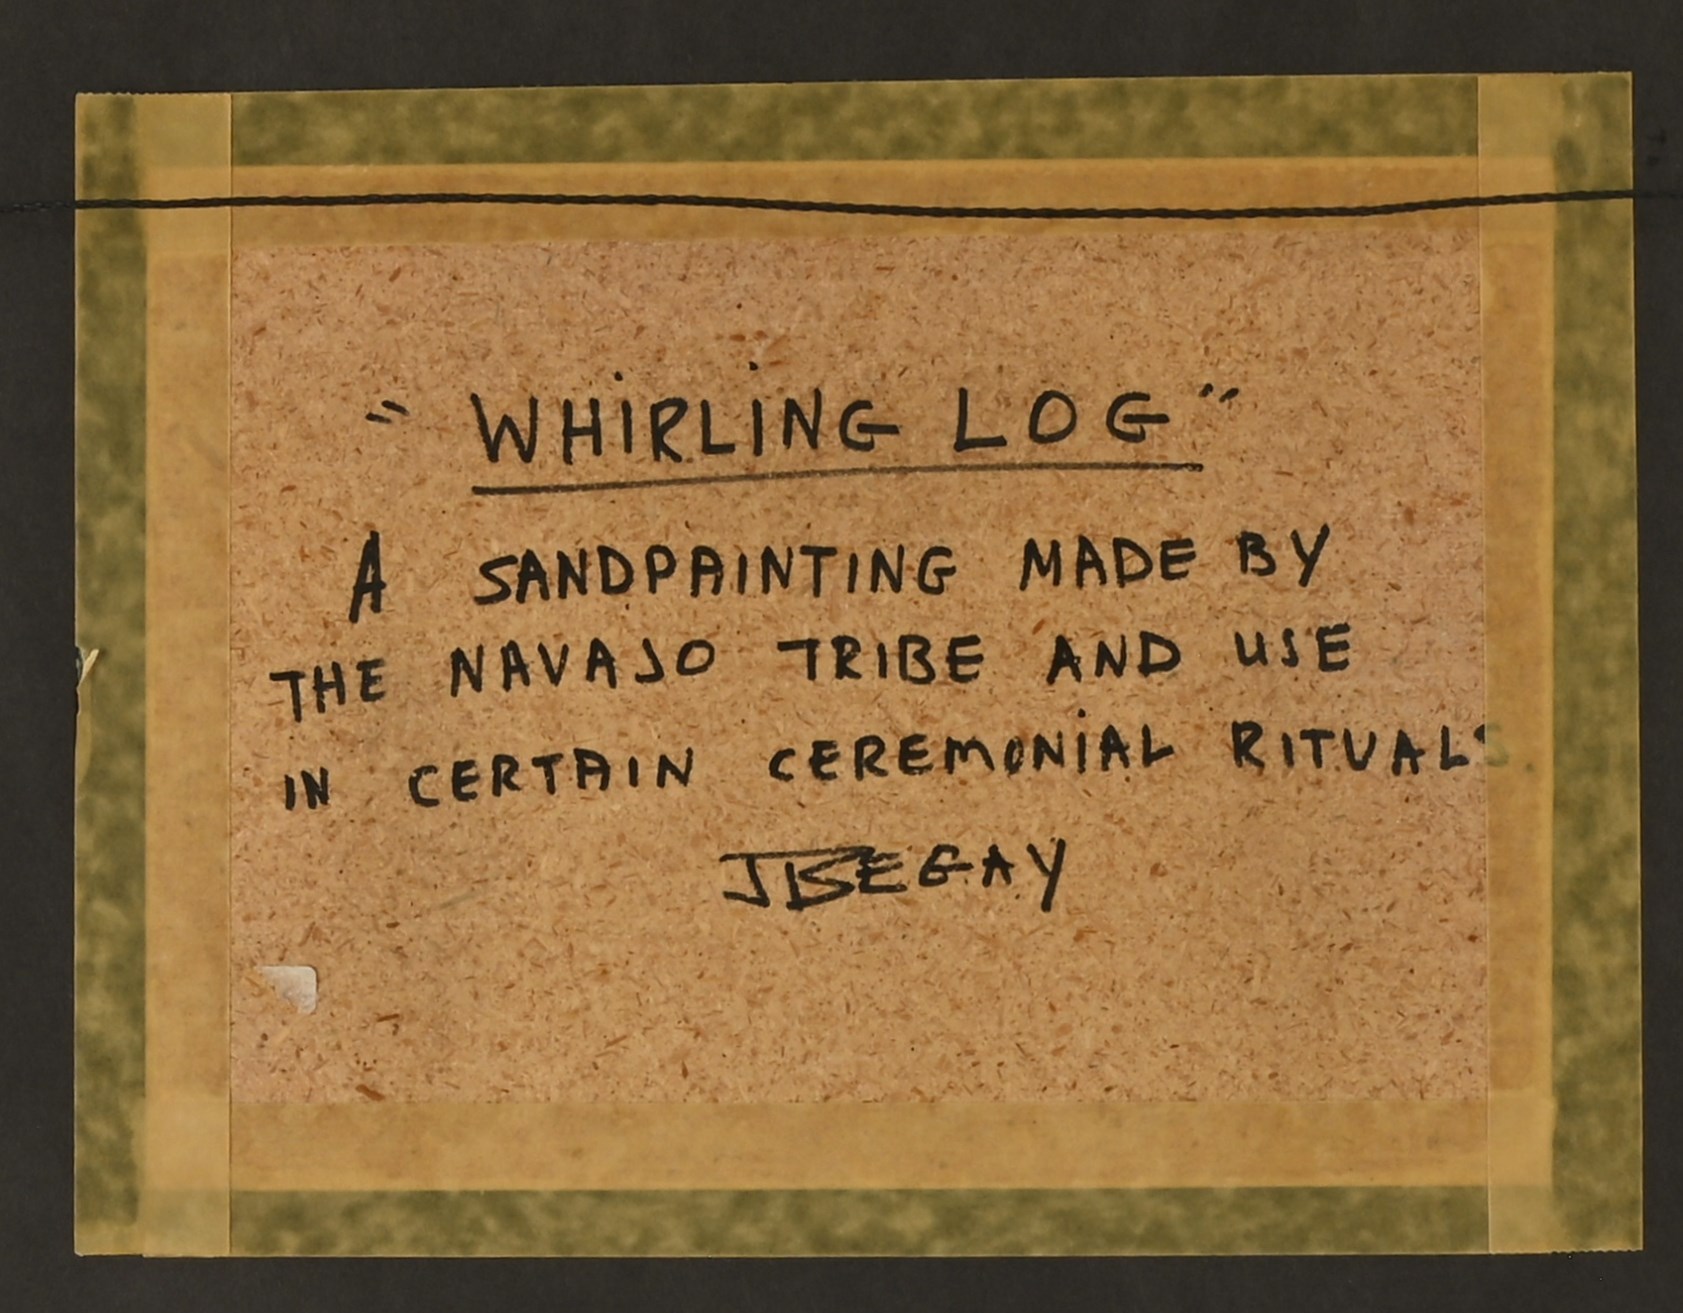 "WHiRLiNG LOG"
A SANDPAINTING MADE BY
THE NAVAJO TRIBE AND USE
IN CERTAIN CEREMONiAL RITUALS.
JBEGAY